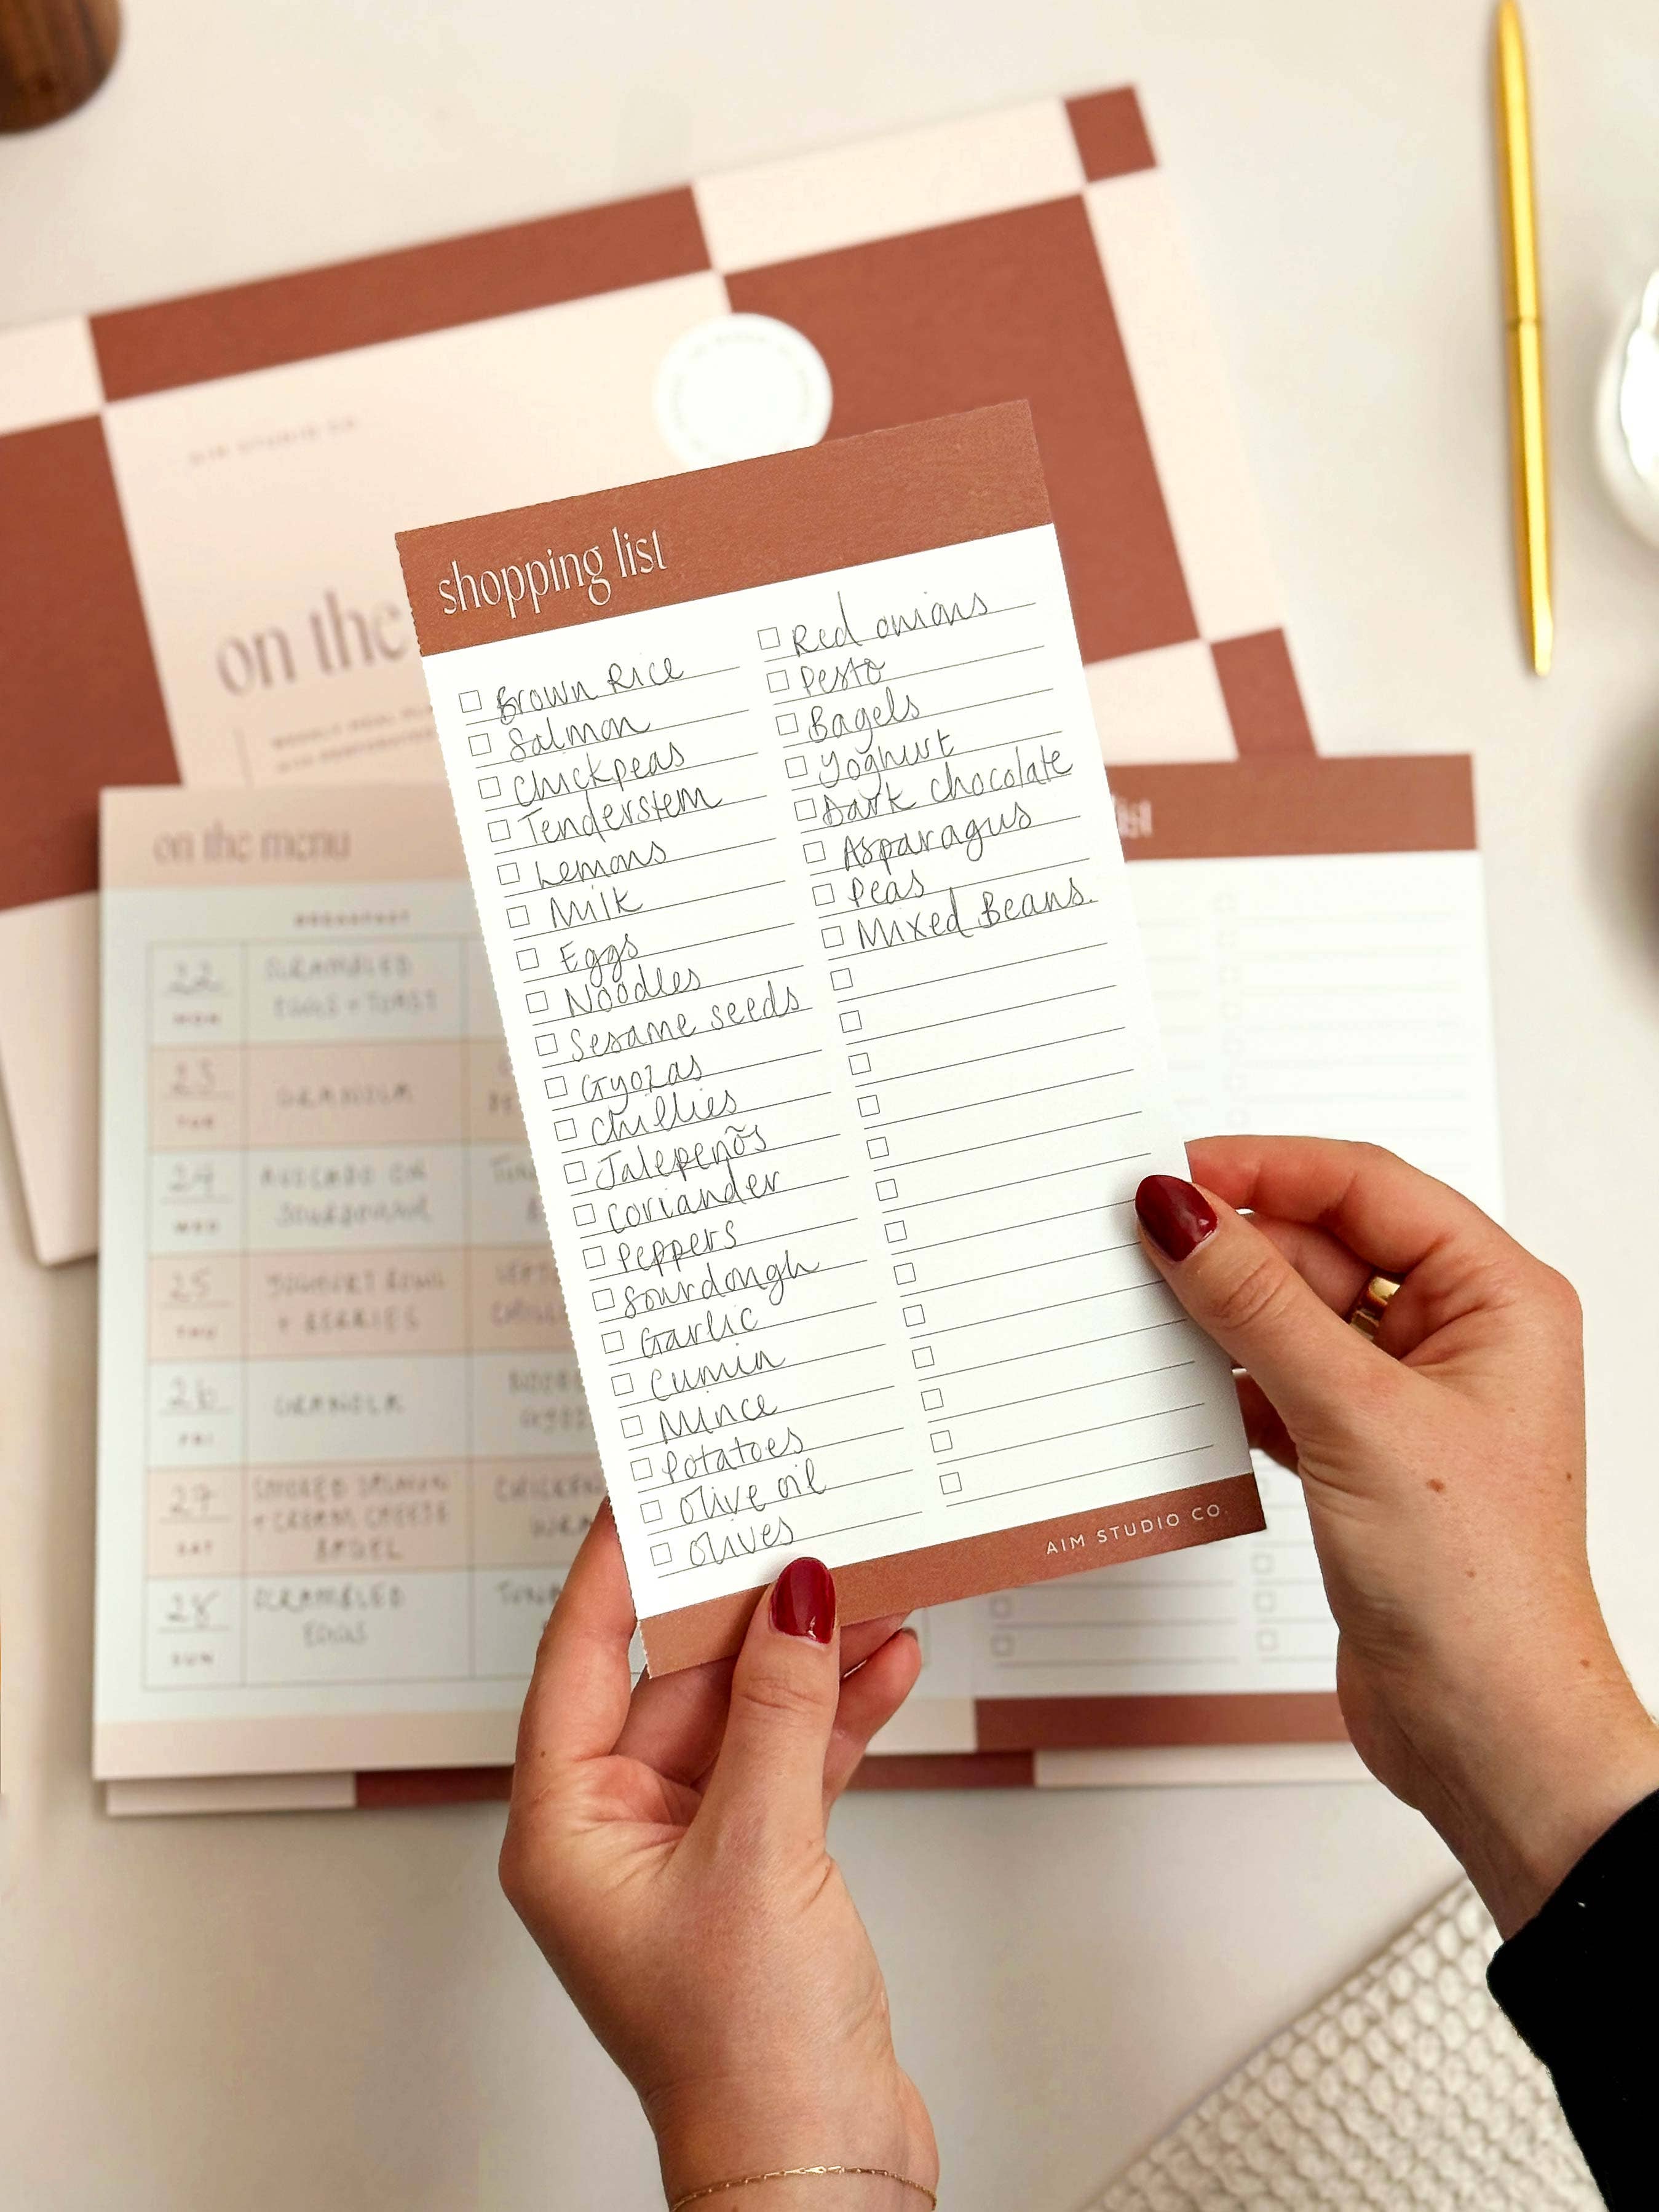 AIM STUDIO CO.
on the
shopping list
Brown Rice
Salmon
Chickpeas
Tenderstem
Lemons
Milk
Eggs
Noodles
Sesame seeds
Gyozas
Chillies
Jalepeños
Coriander
Peppers
Sourdough
Garlic
Cumin
Mince
Potatoes
Olive oil
Olives
Red onions
Pesto
Bagels
Yoghurt
Dark chocolate
Asparagus
Peas
Mixed Beans.
AIM STUDIO CO.
list
on the menu
BREAKFAST
22
MON
SCRAMBLED
EGGS + TOAST
23
TUE
GRANOLA
24
WED
AVOCADO ON
SOURDOUGH
25
THU
YOGHURT BOWL
+ BERRIES
26
FRI
GRANOLA
27
SAT
SMOKED SALMON
+ CREAM CHEESE
BAGEL
28
SUN
SCRAMBLED
EGGS